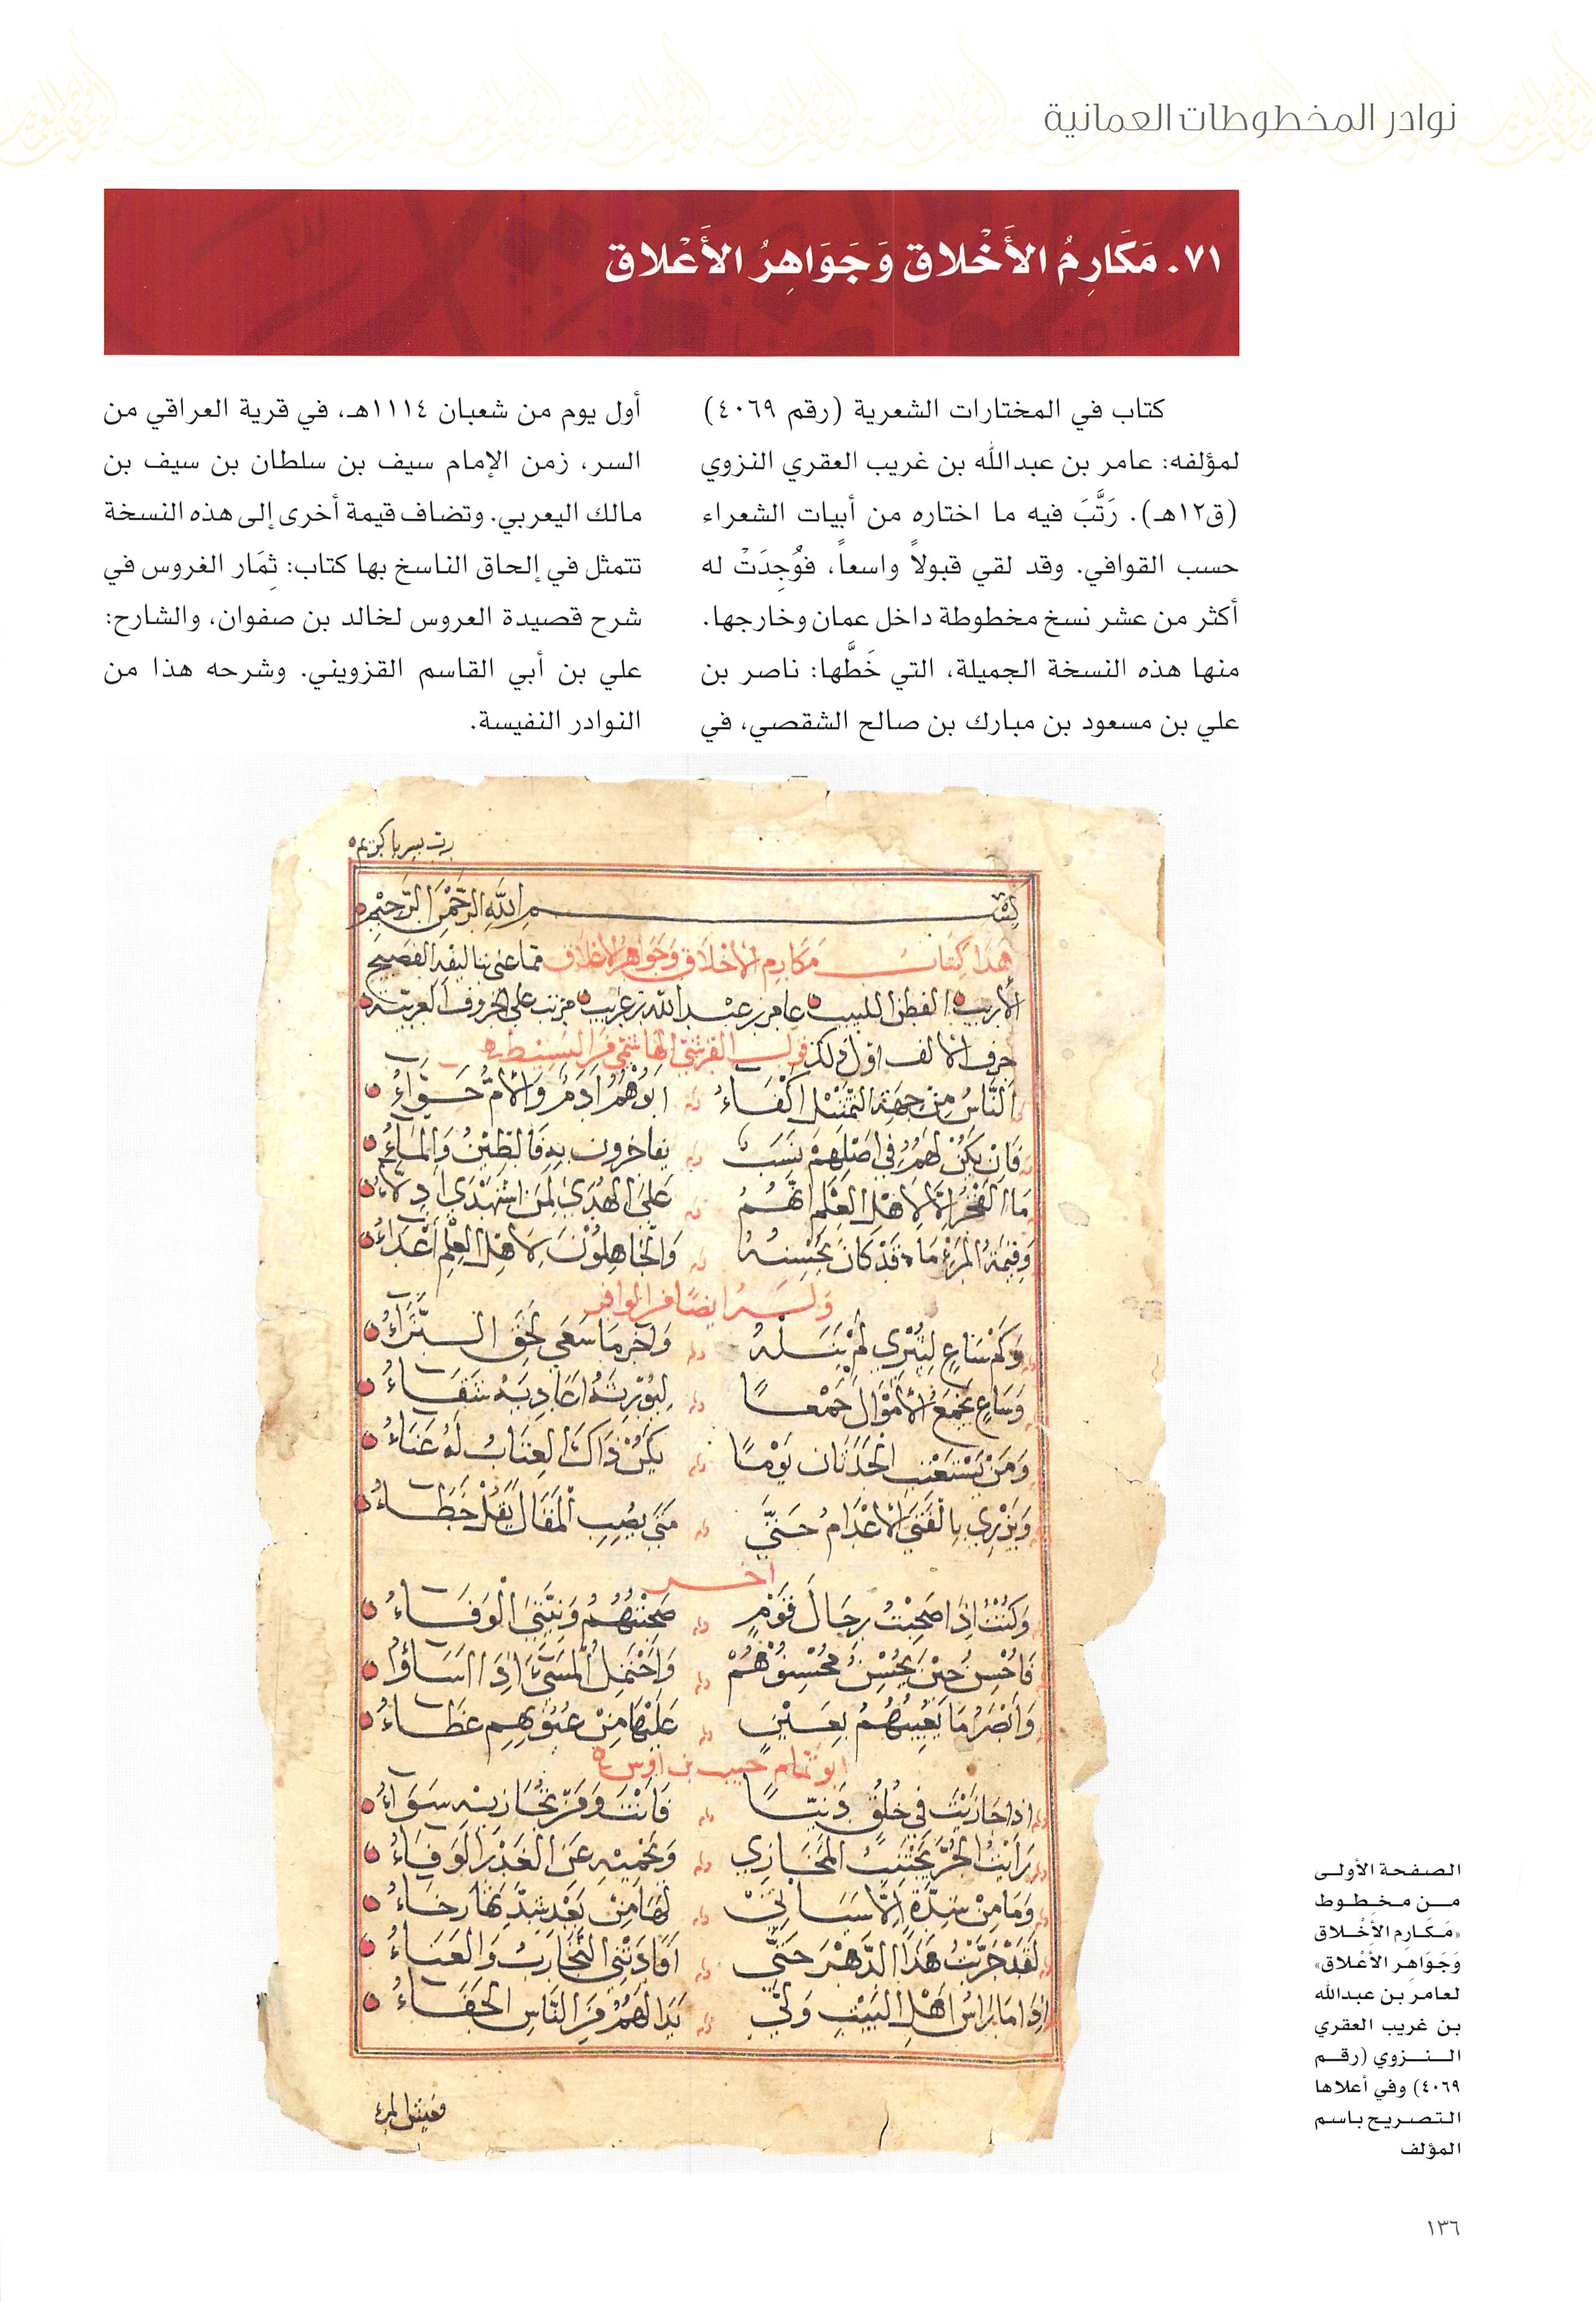 نوادر المخطوطات العمانية
٧١. مَكَارِمُ الأَخْلاق وَجَوَاهِرُ الأَعْلاق
كتاب في المختارات الشعرية (رقم ٤٠٦٩)
لمؤلفه: عامر بن عبدالله بن غريب العقري النزوي
(ق١٢هـ). رَتَّبَ فيه ما اختاره من أبيات الشعراء
حسب القوافي. وقد لقي قبولاً واسعاً، فوُجِدَتْ له
أكثر من عشر نسخ مخطوطة داخل عمان وخارجها.
منها هذه النسخة الجميلة، التي خَطَّها: ناصر بن
علي بن مسعود بن مبارك بن صالح الشقصي، في
أول يوم من شعبان ١١١٤هـ، في قرية العراقي من
السر، زمن الإمام سيف بن سلطان بن سيف بن
مالك اليعربي. وتضاف قيمة أخرى إلى هذه النسخة
تتمثل في إلحاق الناسخ بها كتاب: ثِمَار الغروس في
شرح قصيدة العروس لخالد بن صفوان، والشارح:
علي بن أبي القاسم القزويني. وشرحه هذا من
النوادر النفيسة.
رب يسر يا كريم
بسم الله الرحمن الرحيم
هذا كتاب مكارم الاخلاق وجواهر الاعلاق مما عنى بتاليفه الفصيح
الاريب الفطن اللبيب عامر بن عبد الله بن غريب مرتب على الحروف العربية
حرف الالف اول ذلك قول القرشي الهاشمي من البسيط
النَّاسُ مِنْ جِهَةِ التَّمْثِيْلِ اكْفَاءُ ابُوْهُمُ ادَمُ وَالْامُّ حَوَّاءُ
فَانْ يَكُنْ لَهُمُ فِي اصْلِهِمْ نَسَبٌ يفاخرون به فَالطِّيْنُ وَالْمَاءُ
مَا الفَخْرُ الَّا لِاهْلِ العِلْمِ انَّهُمُ عَلَى الهُدَى لِمَنِ اسْتَهْدَى ادِلَّاءُ
وَقِيْمَةُ المَرْءِ مَا قَدْ كَانَ يُحْسِنُهُ وَالجَاهِلُوْنَ لِاهْلِ العِلْمِ أَعْدَاءُ
وله ايضًا من الوافر
وَكَمْ سَاعٍ لِيُثْرِي لَمْ يَنَلْهُ وَآخَر مَا سَعَى لَحِقَ الثَّرَاءُ
وَسَاعٍ يَجْمَعُ الْأَمْوَالَ جَمْعًا لِيُوْرِثَهُ اعَادِيَهُ شَقَاءُ
وَمَنْ يَسْتَعْتِبِ الحَدَثَان يَوْمًا يَكُنْ ذَاكَ العِتَابُ لَهُ عَنَاءُ
وَيُزْرِي بِالْفَتَى الْاعْدَامُ حَتَّى مَتَى يُصِبِ الْمَقَالَ يُقَلْ خَطَاءُ
اخر
وَكُنْتُ اذَا صَحِبْتُ رِجَالَ قَوْمٍ صَحِبْتُهُمُ وَنِيَّتِيَ الْوَفَاءُ
فَاحْسِنُ حِيْنَ يُحْسِنُ مُحْسِنُوْهُمْ وَاجْتَنِبُ الْمَسَاءَةَ اذَا اسَاؤُا
وَأبْصُرُ مَا يَعِيْبُهُمُ بِعَيْنٍ عَلَيْهَا مِنْ عُيُوْبِهِم غِطَاءُ
ابو تمام حبيب بن اوس
اذا جَارَيْتَ فِي خُلُقٍ دَنِيًّا فَانْتَ وَمَنْ تُجَارِيْهِ سَوَاءُ
رَايْتُ الحُرَّ يَجْتَنِبُ المَخَازِي وَيَحْمِيْهِ عَنِ الغَدْرِ الوَفَاءُ
وَمَا مِنْ شِدَّةٍ الَّا سَيَاتِي لَهَا مِنْ بَعْدِ شِدَّتِهَا رخَاءُ
لَقَدْ جَرَّبْتُ هَذَا الدَّهْرَ حَتَّى افَادَتْنِي التَّجَارِبُ وَالعَنَاءُ
اذَا مَا رَاسُ اهْلِ البَيْتِ وَلَّى بَدَا لَهُمُ مِنَ النَّاسِ الجَفَاءُ
يعيش المرء
الصفحة الأولى
من مخطوط
«مَكَارِم الأخْلاق
وَجَوَاهِر الأَعْلاق»
لعامر بن عبدالله
بن غريب العقري
النزوي (رقم
٤٠٦٩) وفي أعلاها
التصريح باسم
المؤلف
١٣٦